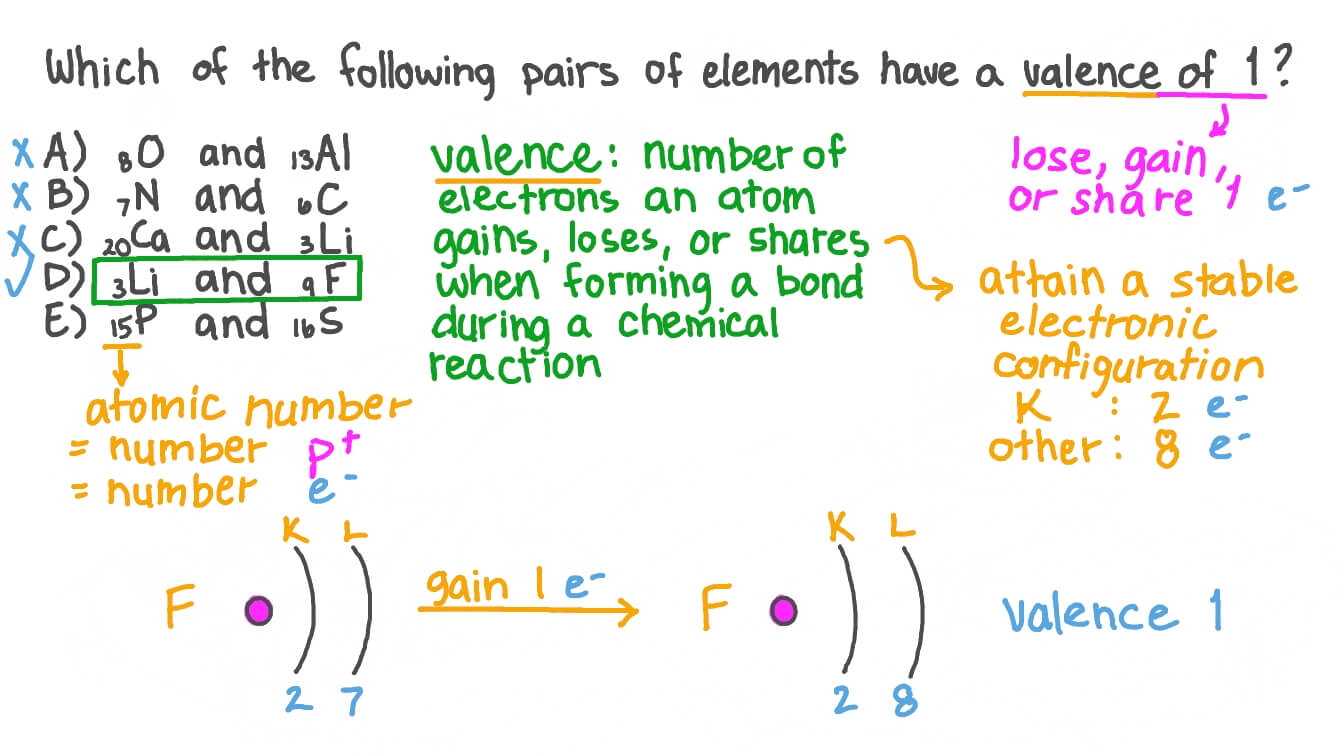 Which of the following pairs of elements have a valence of 1?
x A) ₈O and ₁₃Al
x B) ₇N and ₆C
x C) ₂₀Ca and ₃Li
✓ D) ₃Li and ₉F
E) ₁₅P and ₁₆S
valence: number of
electrons an atom
gains, loses, or shares
when forming a bond
during a chemical
reaction
lose, gain,
or share 1 e⁻
attain a stable
electronic
configuration
K : 2 e⁻
other: 8 e⁻
atomic number
= number p⁺
= number e⁻
K L
F
2 7
gain 1 e⁻
K L
F
2 8
valence 1